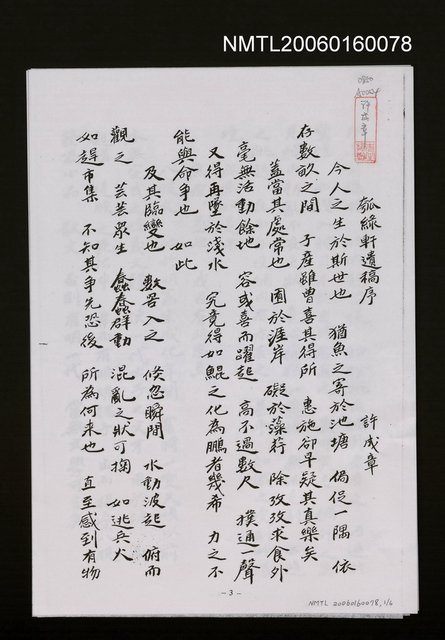 NMTL20060160078
許成章
瓠綠軒遺稿序
許成章
今人之生於斯世也 猶魚之寄於池塘 侷促一隅 依
存數畝之間 子產雖曾喜其得所 惠施卻早疑其真樂矣
蓋當其處常也 困於涯岸 礙於藻荇 除孜孜求食外
毫無活動餘地 容或喜而躍起 高不過數尺 撲通一聲
又得再墜於淺水 究竟得如鯤之化為鵬者幾希 力之不
能與命爭也 如此
及其臨變也 數罟入之 倏忽瞬間 水動波起 俯而
觀之 芸芸眾生 蠢蠢群動 混亂之狀可掬 如逃兵火
如趕市集 不知其爭先恐後 所為何來也 直至感到有物
- 3 -
NMTL 20060160078, 1/6